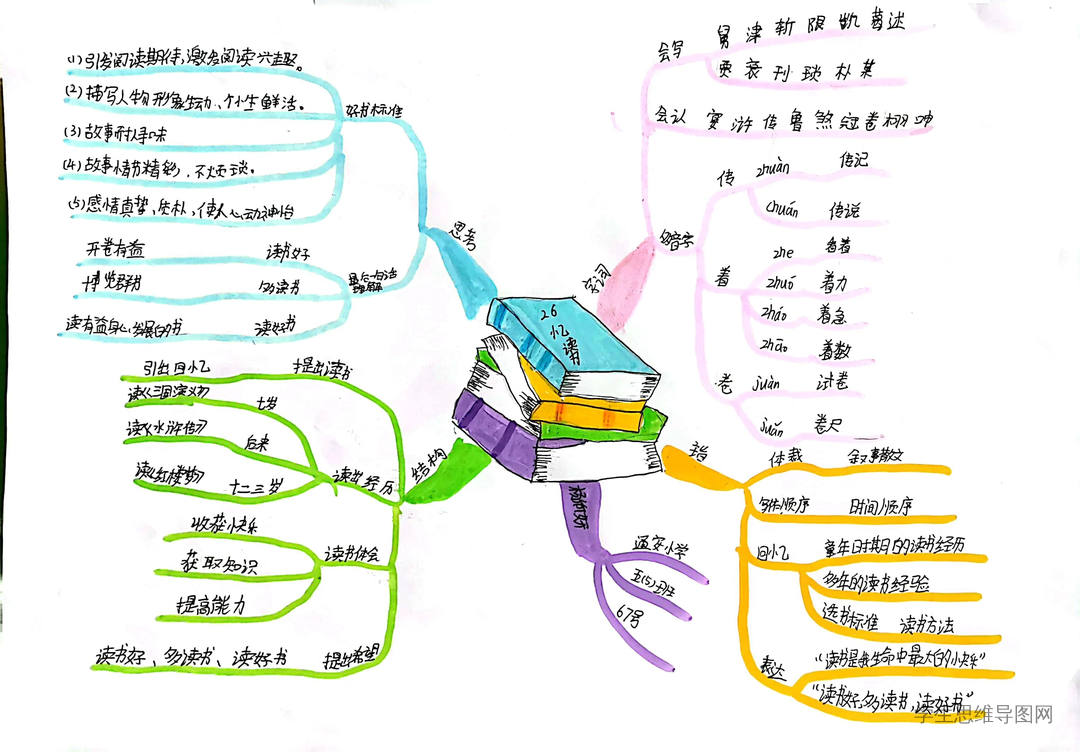 26
忆读书
思考
好书标准
(1) 引发阅读期待,激发阅读兴趣。
(2) 描写人物形象生动、个性鲜活。
(3) 故事耐人寻味
(4) 故事情节精彩,不烦琐。
(5) 感情真挚、质朴,使人心动神怡
最后一句话理解
开卷有益 读书好
博览群书 多读书
读有益身心发展的书 读好书
结构
引出回忆 提出读书
读出经历
读《三国演义》 七岁
读《水浒传》 后来
读《红楼梦》 十二三岁
读书体会
收获快乐
获取知识
提高能力
读书好、多读书、读好书 提出希望
字词
会写
舅 津 斩 限 凯 葛 述
贾 衰 刊 琐 朴 某
会认
寥 浒 传 鲁 煞 冠 卷 栩
多音字
传
zhuàn 传记
chuán 传说
着
zhe
zhuó 着力
zháo 着急
zhāo 着数
卷
juàn 试卷
juǎn 卷尺
体裁 叙事散文
顺序 时间顺序
回忆
童年时期的读书经历
多年的读书经验
选书标准 读书方法
表达
"读书是我生命中最大的快乐"
"读书好,多读书,读好书"
通安小学
五(5)班
67号
学生思维导图网